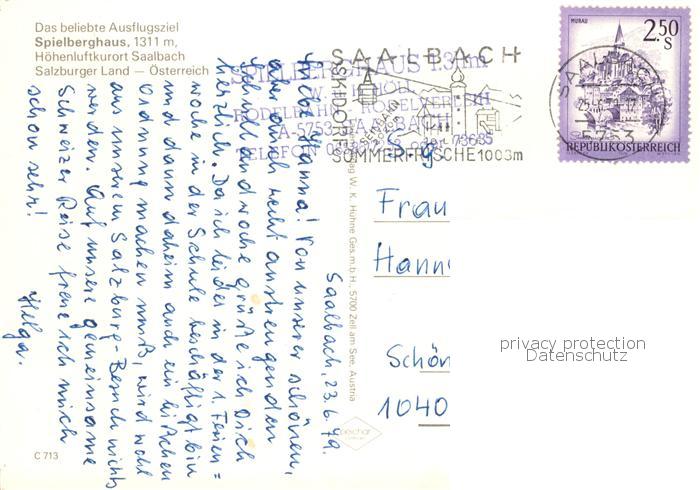 Das beliebte Ausflugsziel
Spielberghaus, 1311 m,
Höhenluftkurort Saalbach
Salzburger Land — Österreich
SPIELBERGHAUS
RODELBAHN RODELVERLEIH
A-5753 SAALBACH
TELEFON
SAALBACH
SKIDORF
SOMMERFRISCHE 1003m
MURAU
2.50
S
REPUBLIK ÖSTERREICH
SAALBACH
5753
Saalbach, 23.6.79.
Liebe Hanna! Von unserer schönen,
aber auch recht anstrengenden
Schullandwoche grüße ich Dich
herzlich. Da ich leider in der 1. Ferien=
woche in der Schule beschäftigt bin
und dann daheim auch ein bißchen
Ordnung machen muß, wird wohl
aus unserem Salzburg-Besuch nichts
werden. Auf unsere gemeinsame
Schweizer Reise freue ich mich
schon sehr!
Helga.
Verlag W. K. Hühne Ges.m.b.H., 5700 Zell am See, Austria
S.g.
Frau
Hann
Schön
1040
privacy protection
Datenschutz
C 713